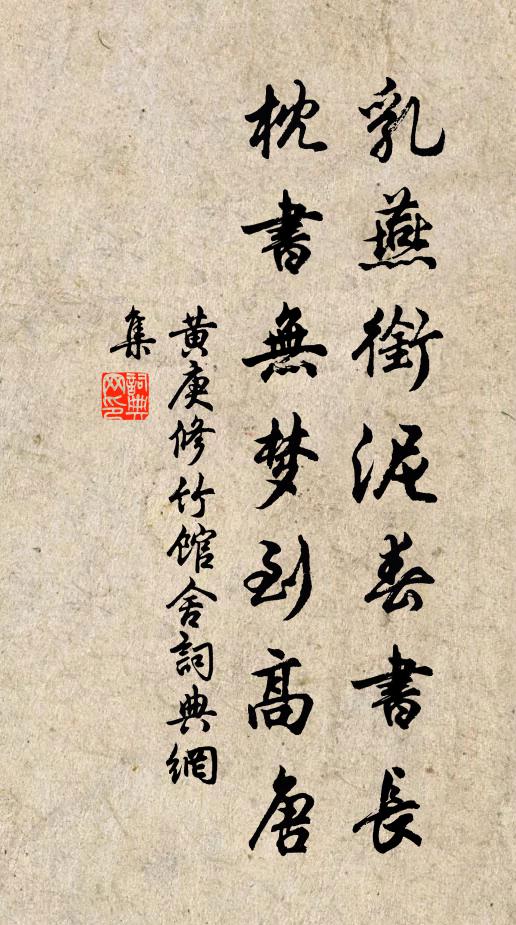 乳燕銜泥春書長
枕書無梦到高唐
黄庚修竹館舍詞典網
集
詞典网印